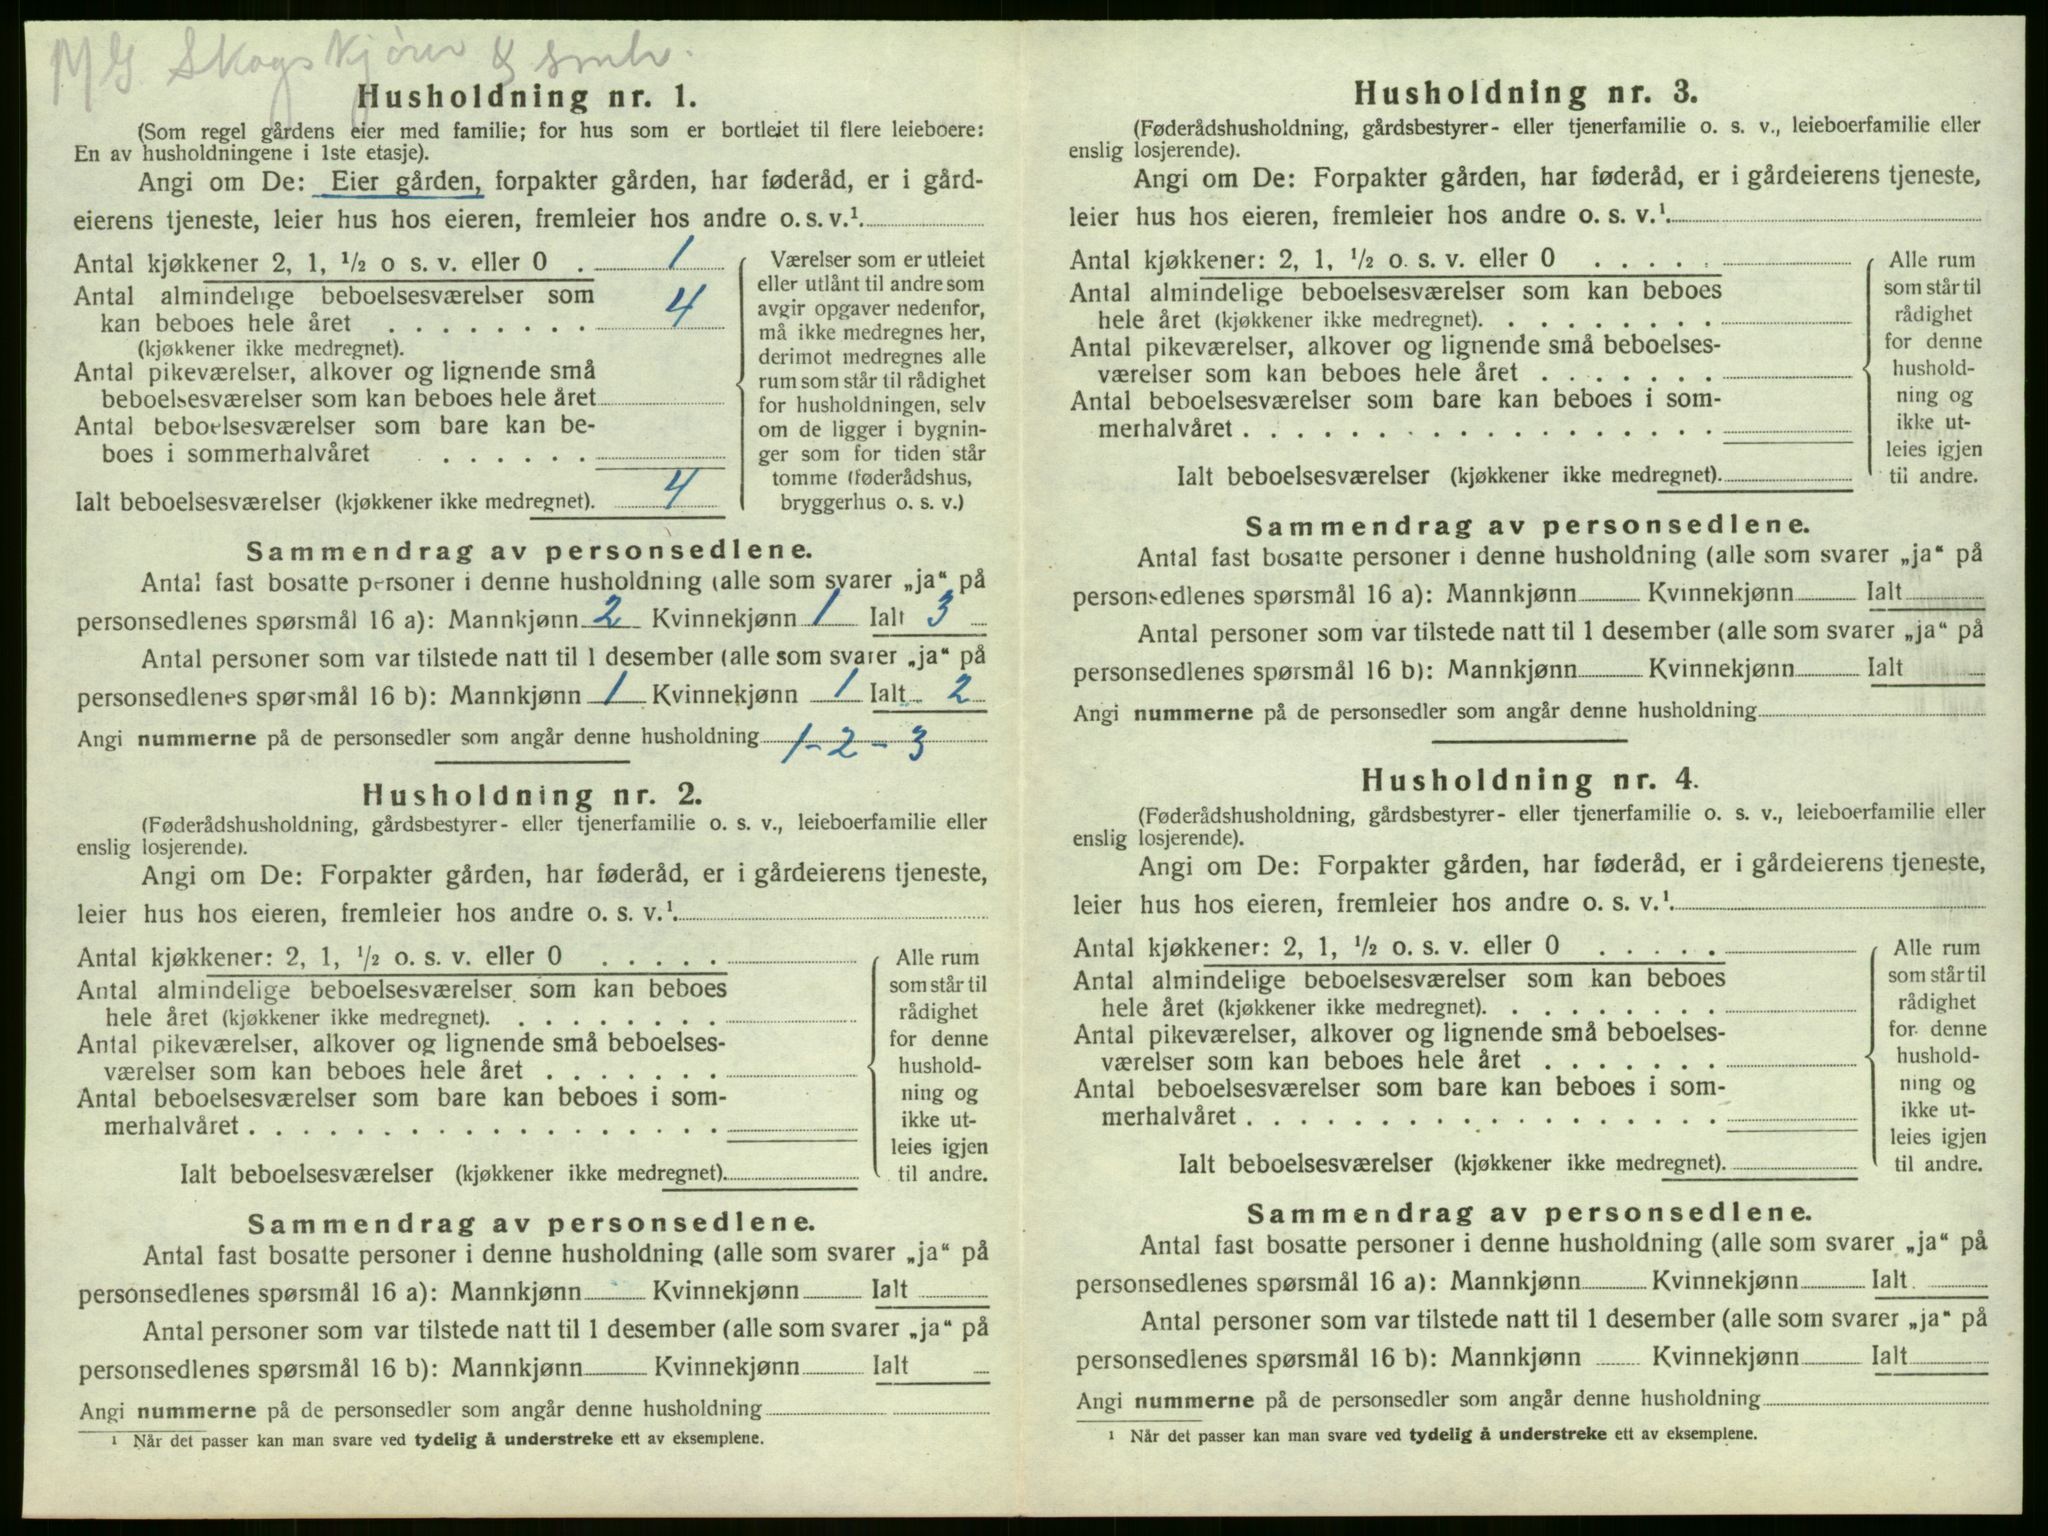 Skogskjører & smbr.
Husholdning nr. 1.
(Som regel gårdens eier med familie; for hus som er bortleiet til flere leieboere:
En av husholdningene i 1ste etasje).
Angi om De: Eier gården, forpakter gården, har føderåd, er i gård-
eierens tjeneste, leier hus hos eieren, fremleier hos andre o. s. v.¹
Antal kjøkkener 2, 1, ½ o s. v. eller 0 . 1
Antal almindelige beboelsesværelser som
kan beboes hele året . . . . . . . . 4
(kjøkkener ikke medregnet).
Antal pikeværelser, alkover og lignende små
beboelsesværelser som kan beboes hele året
Antal beboelsesværelser som bare kan be-
boes i sommerhalvåret . . . . . .
Ialt beboelsesværelser (kjøkkener ikke medregnet). 4
Værelser som er utleiet
eller utlånt til andre som
avgir opgaver nedenfor,
må ikke medregnes her,
derimot medregnes alle
rum som står til rådighet
for husholdningen, selv
om de ligger i bygnin-
ger som for tiden står
tomme (føderådshus,
bryggerhus o. s. v.)
Sammendrag av personsedlene.
Antal fast bosatte personer i denne husholdning (alle som svarer „ja“ på
personsedlenes spørsmål 16 a): Mannkjønn 2 Kvinnekjønn 1 Ialt 3
Antal personer som var tilstede natt til 1 desember (alle som svarer „ja“ på
personsedlenes spørsmål 16 b): Mannkjønn 1 Kvinnekjønn 1 Ialt 2
Angi nummerne på de personsedler som angår denne husholdning 1-2-3
Husholdning nr. 2.
(Føderådshusholdning, gårdsbestyrer- eller tjenerfamilie o. s. v., leieboerfamilie eller
enslig losjerende).
Angi om De: Forpakter gården, har føderåd, er i gårdeierens tjeneste,
leier hus hos eieren, fremleier hos andre o. s. v.¹
Antal kjøkkener: 2, 1, ½ o. s. v. eller 0 . . . . .
Antal almindelige beboelsesværelser som kan beboes
hele året (kjøkkener ikke medregnet). . . . . . . . .
Antal pikeværelser, alkover og lignende små beboelses-
værelser som kan beboes hele året . . . . . . .
Antal beboelsesværelser som bare kan beboes i som-
merhalvåret . . . . . . . . . . . . . . . . . .
Ialt beboelsesværelser (kjøkkener ikke medregnet).
Alle rum
som står til
rådighet
for denne
hushold-
ning og
ikke ut-
leies igjen
til andre.
Sammendrag av personsedlene.
Antal fast bosatte personer i denne husholdning (alle som svarer „ja“ på
personsedlenes spørsmål 16 a): Mannkjønn Kvinnekjønn Ialt
Antal personer som var tilstede natt til 1 desember (alle som svarer „ja“ på
personsedlenes spørsmål 16 b): Mannkjønn Kvinnekjønn Ialt
Angi nummerne på de personsedler som angår denne husholdning
¹ Når det passer kan man svare ved tydelig å understreke ett av eksemplene.
Husholdning nr. 3.
(Føderådshusholdning, gårdsbestyrer- eller tjenerfamilie o. s. v., leieboerfamilie eller
enslig losjerende).
Angi om De: Forpakter gården, har føderåd, er i gårdeierens tjeneste,
leier hus hos eieren, fremleier hos andre o. s. v.¹
Antal kjøkkener: 2, 1, ½ o. s. v. eller 0 . . . . .
Antal almindelige beboelsesværelser som kan beboes
hele året (kjøkkener ikke medregnet). . . . . . . . .
Antal pikeværelser, alkover og lignende små beboelses-
værelser som kan beboes hele året . . . . . . .
Antal beboelsesværelser som bare kan beboes i som-
merhalvåret . . . . . . . . . . . . . . . . . .
Ialt beboelsesværelser (kjøkkener ikke medregnet).
Alle rum
som står til
rådighet
for denne
hushold-
ning og
ikke ut-
leies igjen
til andre.
Sammendrag av personsedlene.
Antal fast bosatte personer i denne husholdning (alle som svarer „ja“ på
personsedlenes spørsmål 16 a): Mannkjønn Kvinnekjønn Ialt
Antal personer som var tilstede natt til 1 desember (alle som svarer „ja“ på
personsedlenes spørsmål 16 b): Mannkjønn Kvinnekjønn Ialt
Angi nummerne på de personsedler som angår denne husholdning
Husholdning nr. 4.
(Føderådshusholdning, gårdsbestyrer- eller tjenerfamilie o. s. v., leieboerfamilie eller
enslig losjerende).
Angi om De: Forpakter gården, har føderåd, er i gårdeierens tjeneste,
leier hus hos eieren, fremleier hos andre o. s. v.¹
Antal kjøkkener: 2, 1, ½ o. s. v. eller 0 . . . . .
Antal almindelige beboelsesværelser som kan beboes
hele året (kjøkkener ikke medregnet). . . . . . . . .
Antal pikeværelser, alkover og lignende små beboelses-
værelser som kan beboes hele året . . . . . . .
Antal beboelsesværelser som bare kan beboes i som-
merhalvåret . . . . . . . . . . . . . . . . . .
Ialt beboelsesværelser (kjøkkener ikke medregnet).
Alle rum
som står til
rådighet
for denne
hushold-
ning og
ikke ut-
leies igjen
til andre.
Sammendrag av personsedlene.
Antal fast bosatte personer i denne husholdning (alle som svarer „ja“ på
personsedlenes spørsmål 16 a): Mannkjønn Kvinnekjønn Ialt
Antal personer som var tilstede natt til 1 desember (alle som svarer „ja“ på
personsedlenes spørsmål 16 b): Mannkjønn Kvinnekjønn Ialt
Angi nummerne på de personsedler som angår denne husholdning
¹ Når det passer kan man svare ved tydelig å understreke ett av eksemplene.